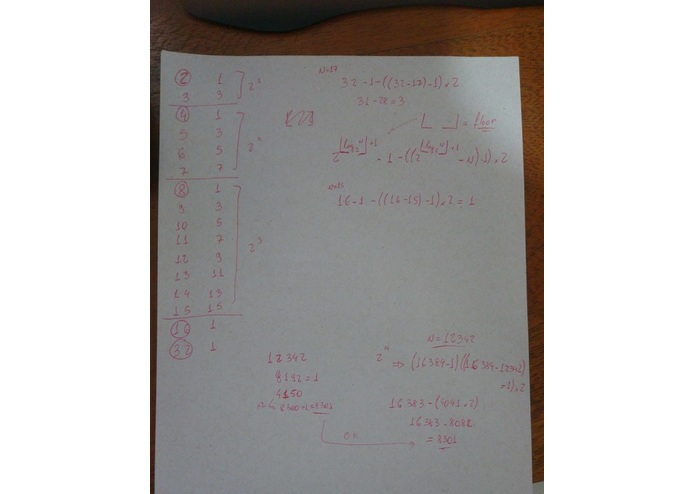 2 1
3 3
2¹
4 1
5 3
6 5
7 7
2²
8 1
9 3
10 5
11 7
12 9
13 11
14 13
15 15
2³
16 1
32 1
N=17
32-1-((32-17)-1).2
31-28=3
⌊ ⌋ = floor
2^(⌊log₂N⌋+1) - 1 - ((2^(⌊log₂N⌋+1) - N)-1).2
16-1-((16-15)-1).2=1
12342
8192=1
4150
N=12342
⇒ (16384-1)((16384-12342)
-1).2
16383-(4041.2)
16383-8082
=8301
OK